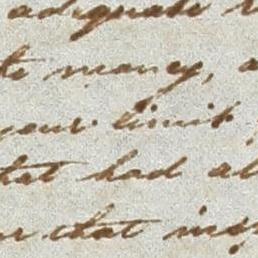 adequate
money,
your limit
that had al
that